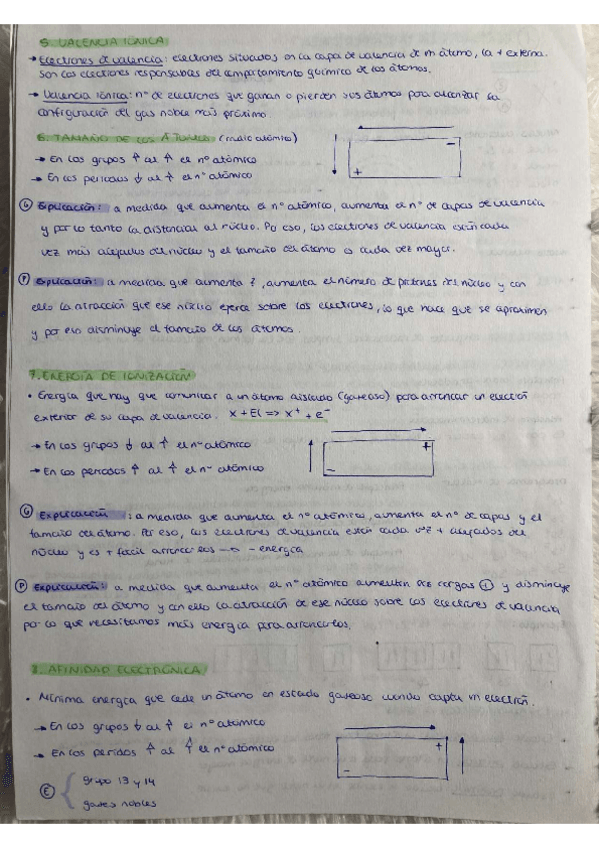 5. VALENCIA IÓNICA
→ Electrones de valencia: electrones situados en la capa de valencia de un átomo, la + externa.
Son los electrones responsables del comportamiento químico de los átomos.
→ Valencia iónica: nº de electrones que ganan o pierden sus átomos para alcanzar la
configuración del gas noble más próximo.
6. TAMAÑO DE LOS ÁTOMOS (radio atómico)
→ En los grupos ↑ al ↑ el nº atómico
→ En los periodos ↓ al ↑ el nº atómico
- +
G Explicación: a medida que aumenta el nº atómico, aumenta el nº de capas de valencia
y por lo tanto la distancia al núcleo. Por eso, los electrones de valencia están cada
vez más alejados del núcleo y el tamaño del átomo es cada vez mayor.
P Explicación: a medida que aumenta Z, aumenta el número de protones del núcleo y con
ello la atracción que ese núcleo ejerce sobre los electrones, lo que hace que se aproximen
y por eso disminuye el tamaño de los átomos.
7. ENERGÍA DE IONIZACIÓN
• Energía que hay que comunicar a un átomo aislado (gaseoso) para arrancar un electrón
exterior de su capa de valencia. X + EI => X⁺ + e⁻
→ En los grupos ↓ al ↑ el nº atómico
→ En los periodos ↑ al ↑ el nº atómico
+ -
G Explicación: a medida que aumenta el nº atómico, aumenta el nº de capas y el
tamaño del átomo. Por eso, los electrones de valencia están cada vez + alejados del
núcleo y es + fácil arrancarlos → - energía
P Explicación: a medida que aumenta el nº atómico aumentan las cargas + y disminuye
el tamaño del átomo y con ello la atracción de ese núcleo sobre los electrones de valencia
por lo que necesitamos más energía para arrancarlos.
8. AFINIDAD ELECTRÓNICA
• Mínima energía que cede un átomo en estado gaseoso cuando capta un electrón.
→ En los grupos ↓ al ↑ el nº atómico
→ En los periodos ↑ al ↑ el nº atómico
+ -
E { grupo 13 y 14
gases nobles